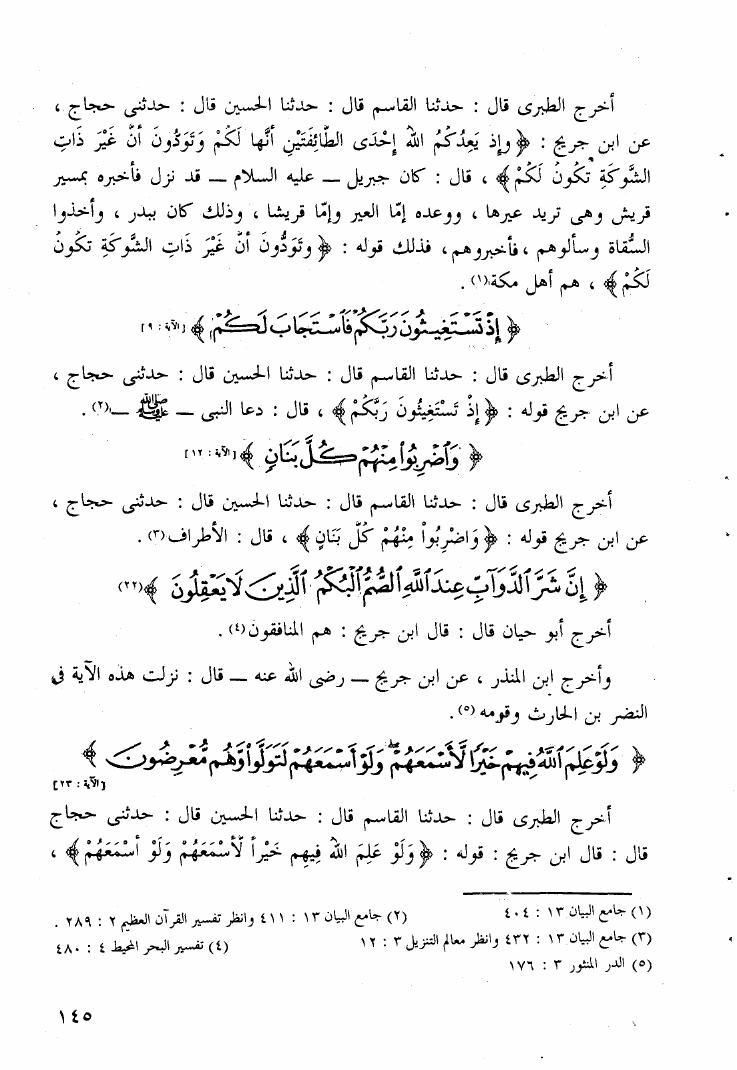 أخرج الطبرى قال : حدثنا القاسم قال : حدثنا الحسين قال : حدثنى حجاج ،
عن ابن جريج : ﴿ وإِذ يَعِدُكُمُ اللهُ إِحْدَى الطَّائِفَتَيْنِ أَنَّها لَكُمْ وَتَوَدُّونَ أَنَّ غَيْرَ ذَاتِ
الشَّوكَةِ تَكُونُ لَكُمْ ﴾ ، قال : كان جبريل ــ عليه السلام ــ قد نزل فأخبره بمسير
قريش وهى تريد عيرها ، ووعده إمّا العير وإمّا قريشا ، وذلك كان ببدر ، وأخذوا
السُّقاة وسألوهم ، فأخبروهم ، فذلك قوله : ﴿ وتَوَدُّونَ أَنَّ غَيْرَ ذَاتِ الشَّوكَةِ تَكُونُ
لَكُمْ ﴾ ، هم أهل مكة(١) .
﴿ إِذْ تَسْتَغِيثُونَ رَبَّكُمْ فَاسْتَجَابَ لَكُمْ ﴾ [الآية : ٩]
أخرج الطبرى قال : حدثنا القاسم قال : حدثنا الحسين قال : حدثنى حجاج ،
عن ابن جريج قوله : ﴿ إِذْ تَسْتَغِيثُونَ رَبَّكُمْ ﴾ ، قال : دعا النبى ــ ﷺ ــ(٢) .
﴿ وَاضْرِبُوا مِنْهُمْ كُلَّ بَنَانٍ ﴾ [الآية : ١٢]
أخرج الطبرى قال : حدثنا القاسم قال : حدثنا الحسين قال : حدثنى حجاج ،
عن ابن جريج قوله : ﴿ وَاضْرِبُواْ مِنْهُمْ كُلَّ بَنَانٍ ﴾ ، قال : الأطراف(٣) .
﴿ إِنَّ شَرَّ الدَّوَآبِّ عِندَ اللَّهِ الصُّمُّ الْبُكْمُ الَّذِينَ لَا يَعْقِلُونَ ﴾(٢٢)
أخرج أبو حيان قال : قال ابن جريج : هم المنافقون(٤) .
وأخرج ابن المنذر ، عن ابن جريج ــ رضى الله عنه ــ قال : نزلت هذه الآية فى
النضر بن الحارث وقومه(٥) .
﴿ وَلَوْ عَلِمَ اللَّهُ فِيهِمْ خَيْرًا لَّأَسْمَعَهُمْ وَلَوْ أَسْمَعَهُمْ لَتَوَلَّوا وَّهُم مُّعْرِضُونَ ﴾
[الآية : ٢٣]
أخرج الطبرى قال : حدثنا القاسم قال : حدثنا الحسين قال : حدثنى حجاج
قال : قال ابن جريج : قوله : ﴿ وَلَوْ عَلِمَ اللهُ فِيهِم خَيْراً لأَسْمَعَهُمْ وَلَوْ أَسْمَعَهُمْ ﴾ ،
(١) جامع البيان ١٣ : ٤٠٤ (٢) جامع البيان ١٣ : ٤١١ وانظر تفسير القرآن العظيم ٢ : ٢٨٩ .
(٣) جامع البيان ١٣ : ٤٣٢ وانظر معالم التنزيل ٣ : ١٢ (٤) تفسير البحر المحيط ٤ : ٤٨٠
(٥) الدر المنثور ٣ : ١٧٦
١٤٥